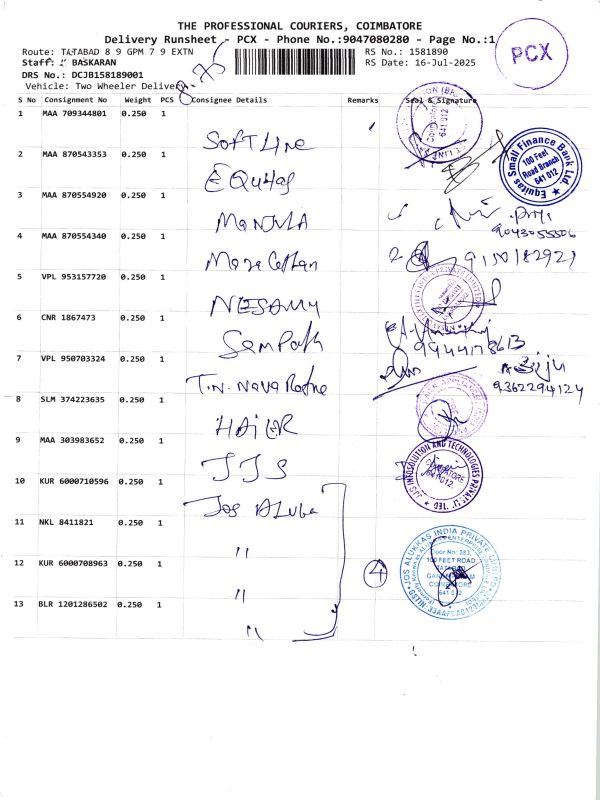 THE PROFESSIONAL COURIERS, COIMBATORE
Delivery Runsheet - PCX - Phone No.:9047080280 - Page No.:1
Route: TATABAD 8 9 GPM 7 9 EXTN
RS No.: 1581890
Staff: BASKARAN
RS Date: 16-Jul-2025
DRS No.: DCJB1581890​01
Vehicle: Two Wheeler Delivery
PCX
S No Consignment No Weight PCS Consignee Details Remarks Seal & Signature
1 MAA 709344801 0.250 1
Softline
2 MAA 870543353 0.250 1
EQuitas
Equitas Small Finance Bank Ltd.
100 Feet
Road Branch
641 012
3 MAA 870554920 0.250 1
ManJULA
9043055506
4 MAA 870554340 0.250 1
9150182921
5 VPL 953157720 0.250 1
NESAMY
6 CNR 1867473 0.250 1
Sampath
9944178613
7 VPL 950703324 0.250 1
T.N. Nava Ratna
Biju
9362294124
8 SLM 374223635 0.250 1
HAiER
9 MAA 303983652 0.250 1
JJS
JJS INFOSOLUTION AND TECHNOLOGIES PRIVATE LIMITED
COIMBATORE
641 012
10 KUR 6000710596 0.250 1
Jos ALuka
11 NKL 8411821 0.250 1
"
12 KUR 6000708963 0.250 1
"
4
JOS ALUKKAS INDIA PRIVATE LIMITED
Door No: 383,
100 FEET ROAD
TATABAD
COIMBATORE
641 012
13 BLR 1201286502 0.250 1
"